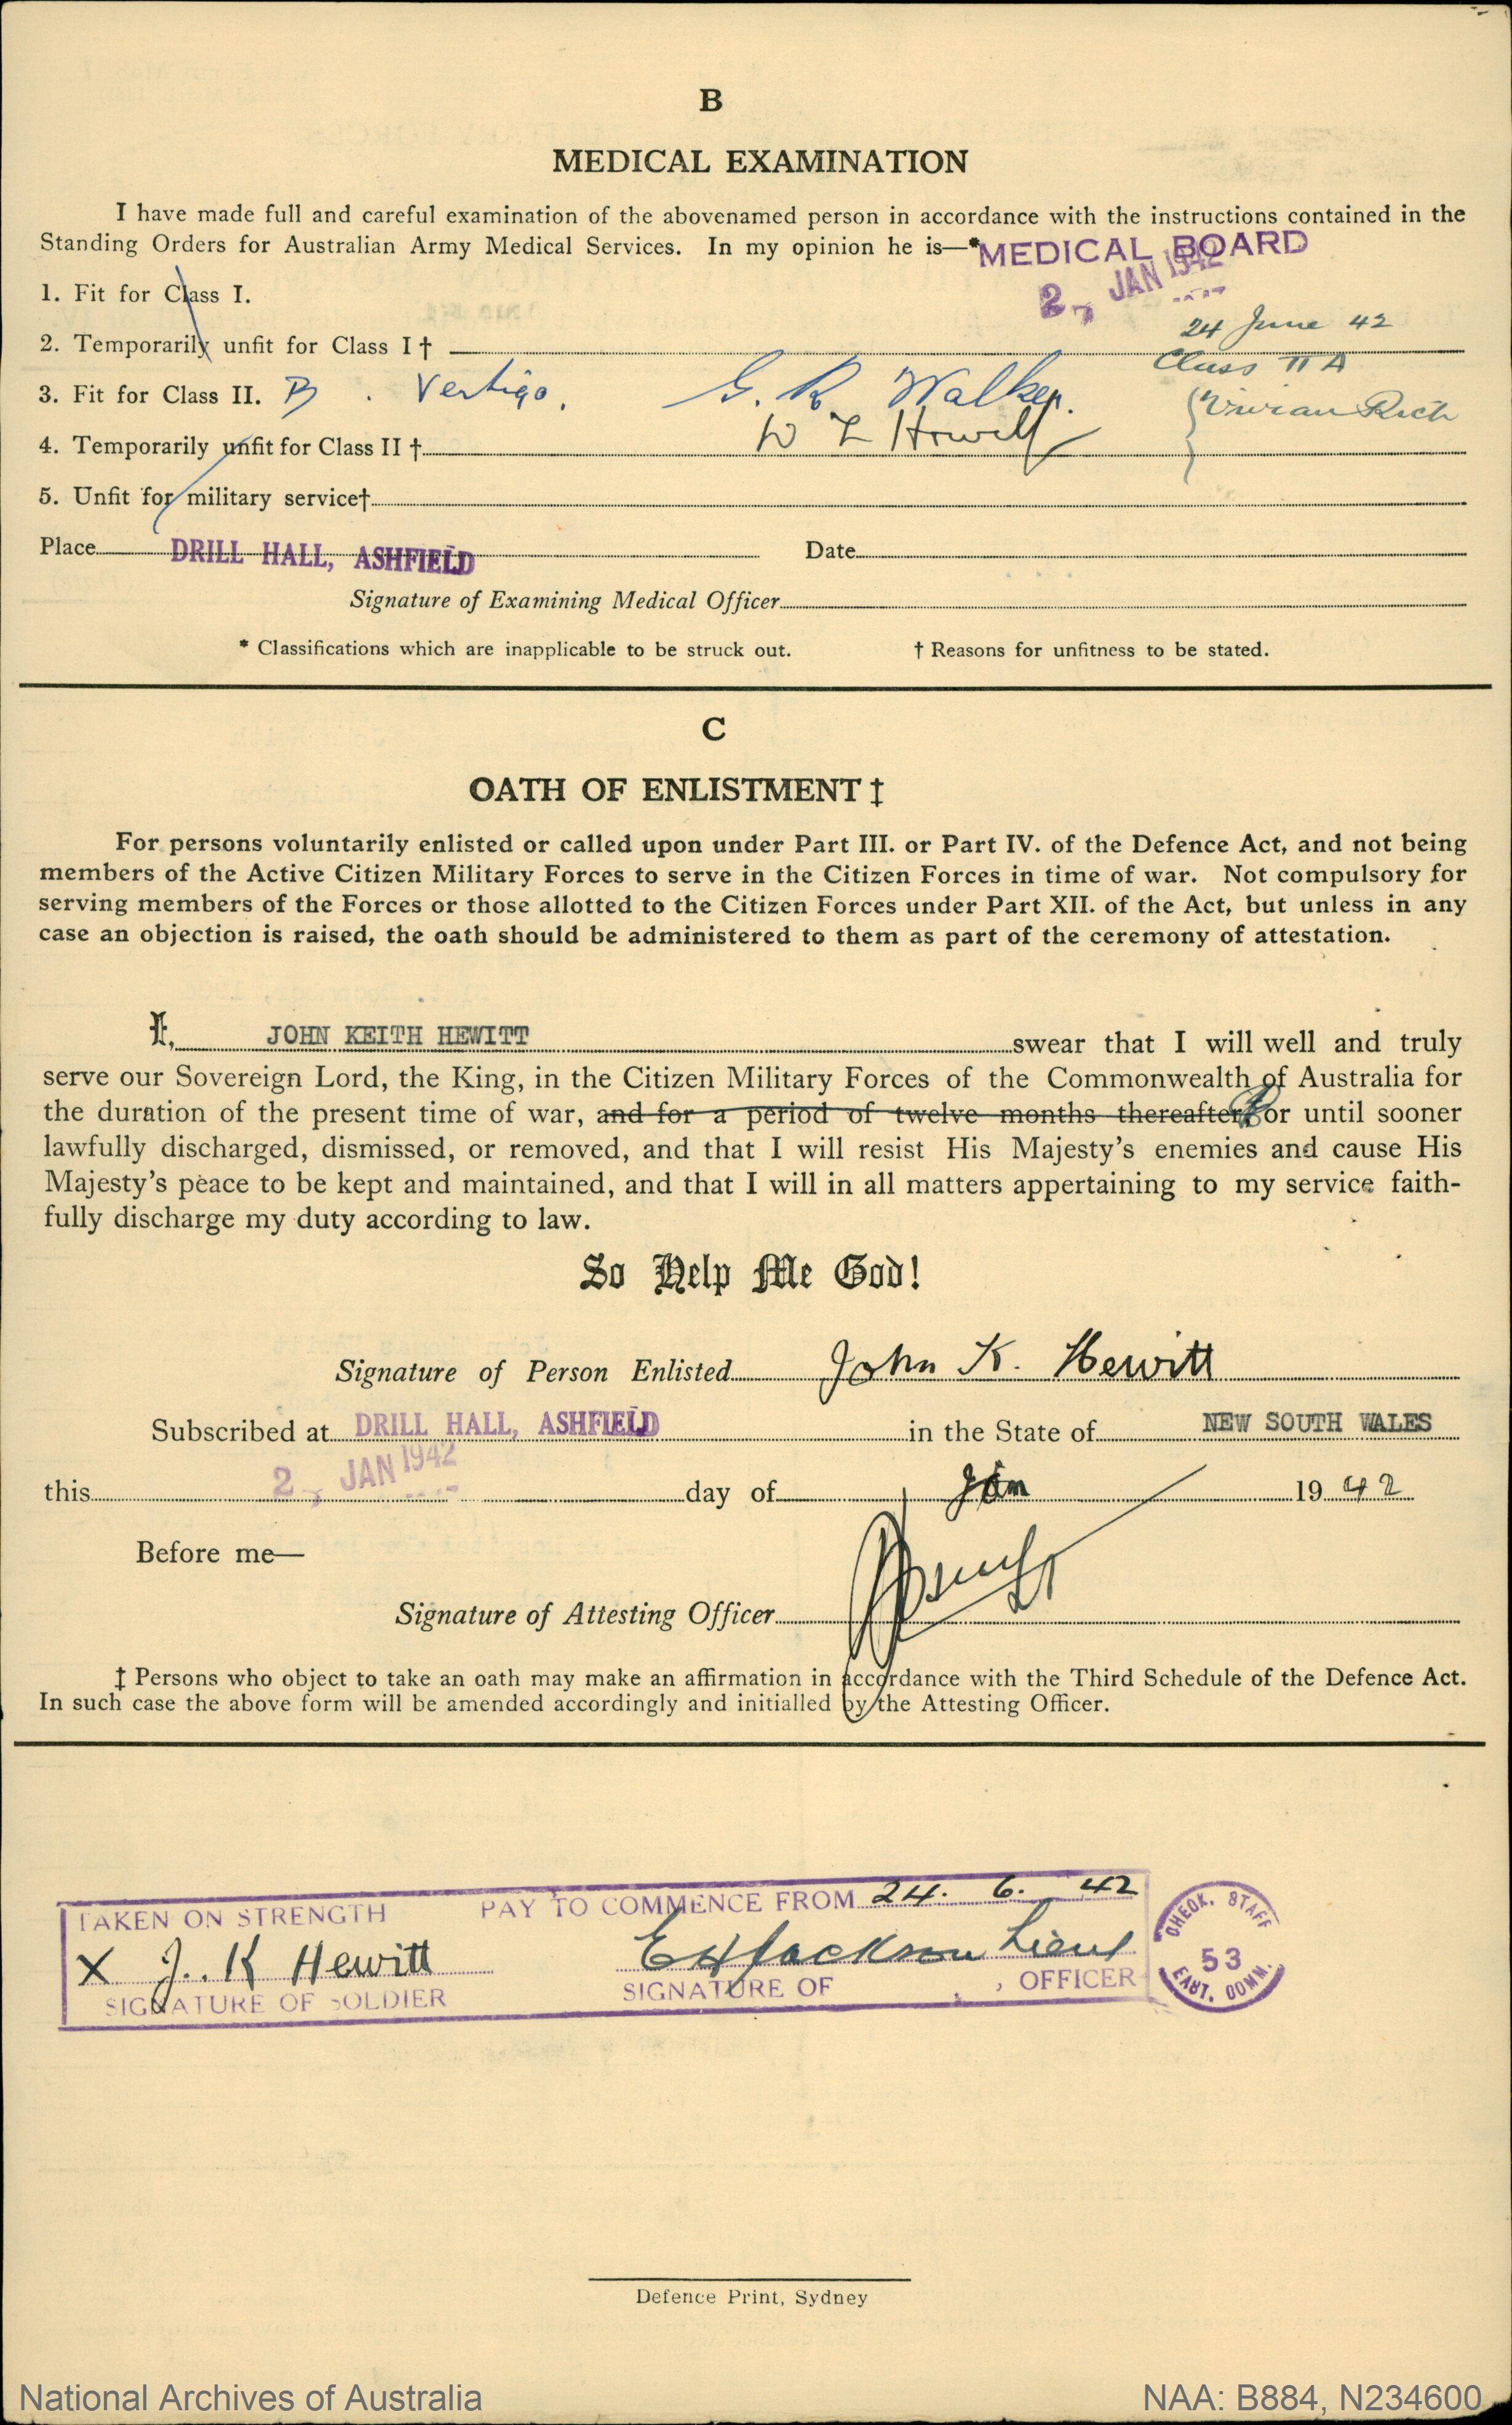 B
MEDICAL EXAMINATION
I have made full and careful examination of the abovenamed person in accordance with the instructions contained in the
Standing Orders for Australian Army Medical Services. In my opinion he is—*
MEDICAL BOARD
2 JAN 1942
1. Fit for Class I.
24 June 42
2. Temporarily unfit for Class I †
Class II A
3. Fit for Class II. B. Vertigo. G. R. Walker.
Vivian Rich
W L Howell
4. Temporarily unfit for Class II †
5. Unfit for military service†
Place DRILL HALL, ASHFIELD Date
Signature of Examining Medical Officer
* Classifications which are inapplicable to be struck out. † Reasons for unfitness to be stated.
C
OATH OF ENLISTMENT ‡
For persons voluntarily enlisted or called upon under Part III. or Part IV. of the Defence Act, and not being
members of the Active Citizen Military Forces to serve in the Citizen Forces in time of war. Not compulsory for
serving members of the Forces or those allotted to the Citizen Forces under Part XII. of the Act, but unless in any
case an objection is raised, the oath should be administered to them as part of the ceremony of attestation.
I, JOHN KEITH HEWITT swear that I will well and truly
serve our Sovereign Lord, the King, in the Citizen Military Forces of the Commonwealth of Australia for
the duration of the present time of war, and for a period of twelve months thereafter, or until sooner
lawfully discharged, dismissed, or removed, and that I will resist His Majesty's enemies and cause His
Majesty's peace to be kept and maintained, and that I will in all matters appertaining to my service faith-
fully discharge my duty according to law.
So Help Me God!
Signature of Person Enlisted John K. Hewitt
Subscribed at DRILL HALL, ASHFIELD in the State of NEW SOUTH WALES
this 2 JAN 1942 day of Jan 1942
Before me—
Signature of Attesting Officer
‡ Persons who object to take an oath may make an affirmation in accordance with the Third Schedule of the Defence Act.
In such case the above form will be amended accordingly and initialled by the Attesting Officer.
TAKEN ON STRENGTH PAY TO COMMENCE FROM 24. 6. 42
X J. K Hewitt E H Jackson Lieut
SIGNATURE OF SOLDIER SIGNATURE OF OFFICER
CHECK. STAFF
53
EAST. COMM.
Defence Print, Sydney
National Archives of Australia NAA: B884, N234600